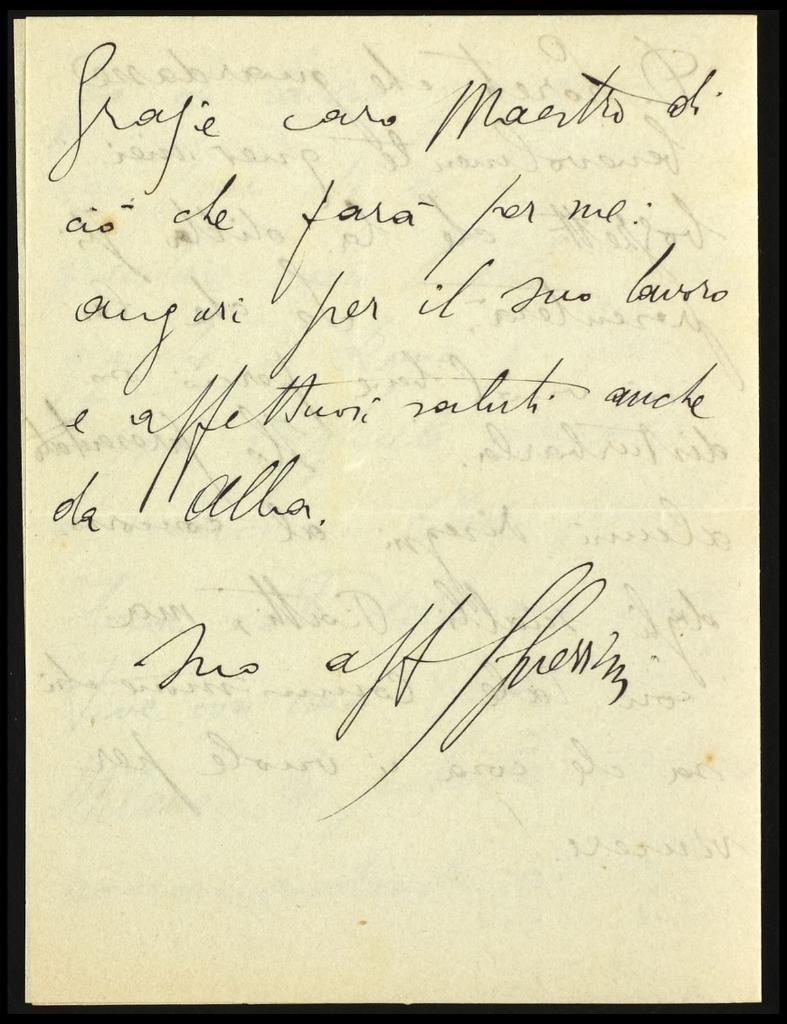 Grazie caro Maestro di
ciò che farà per me:
auguri per il suo lavoro
e affettuosi saluti anche
da Alba.
suo aff